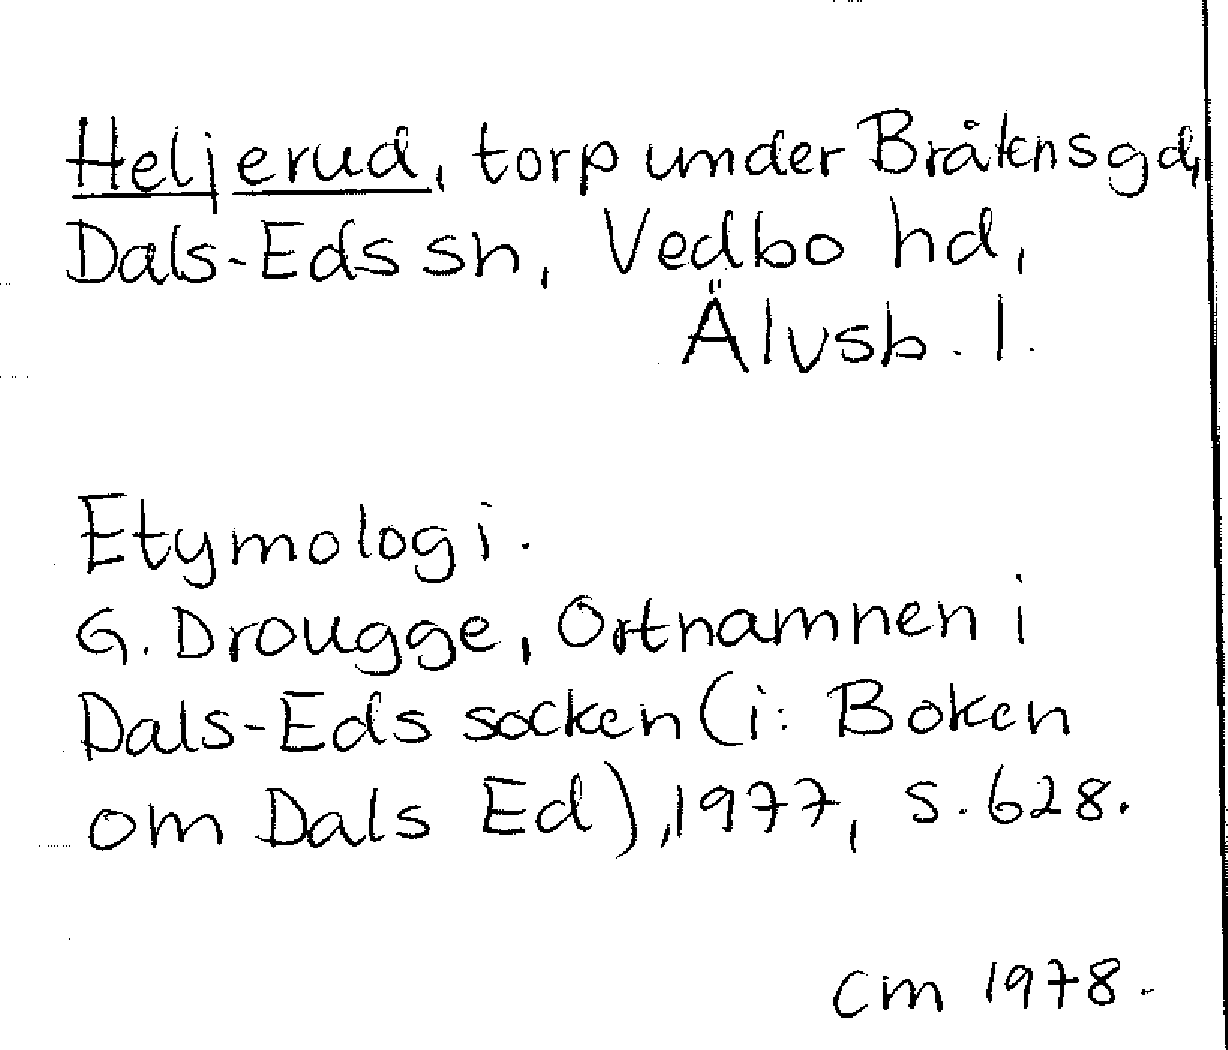 Heljerud, torp under Bråtensgd,
Dals-Eds sn, Vedbo hd,
Älvsb. l.
Etymologi.
G. Drougge, Ortnamnen i
Dals-Eds socken (i: Boken
om Dals Ed), 1977, s. 628.
CM 1978.